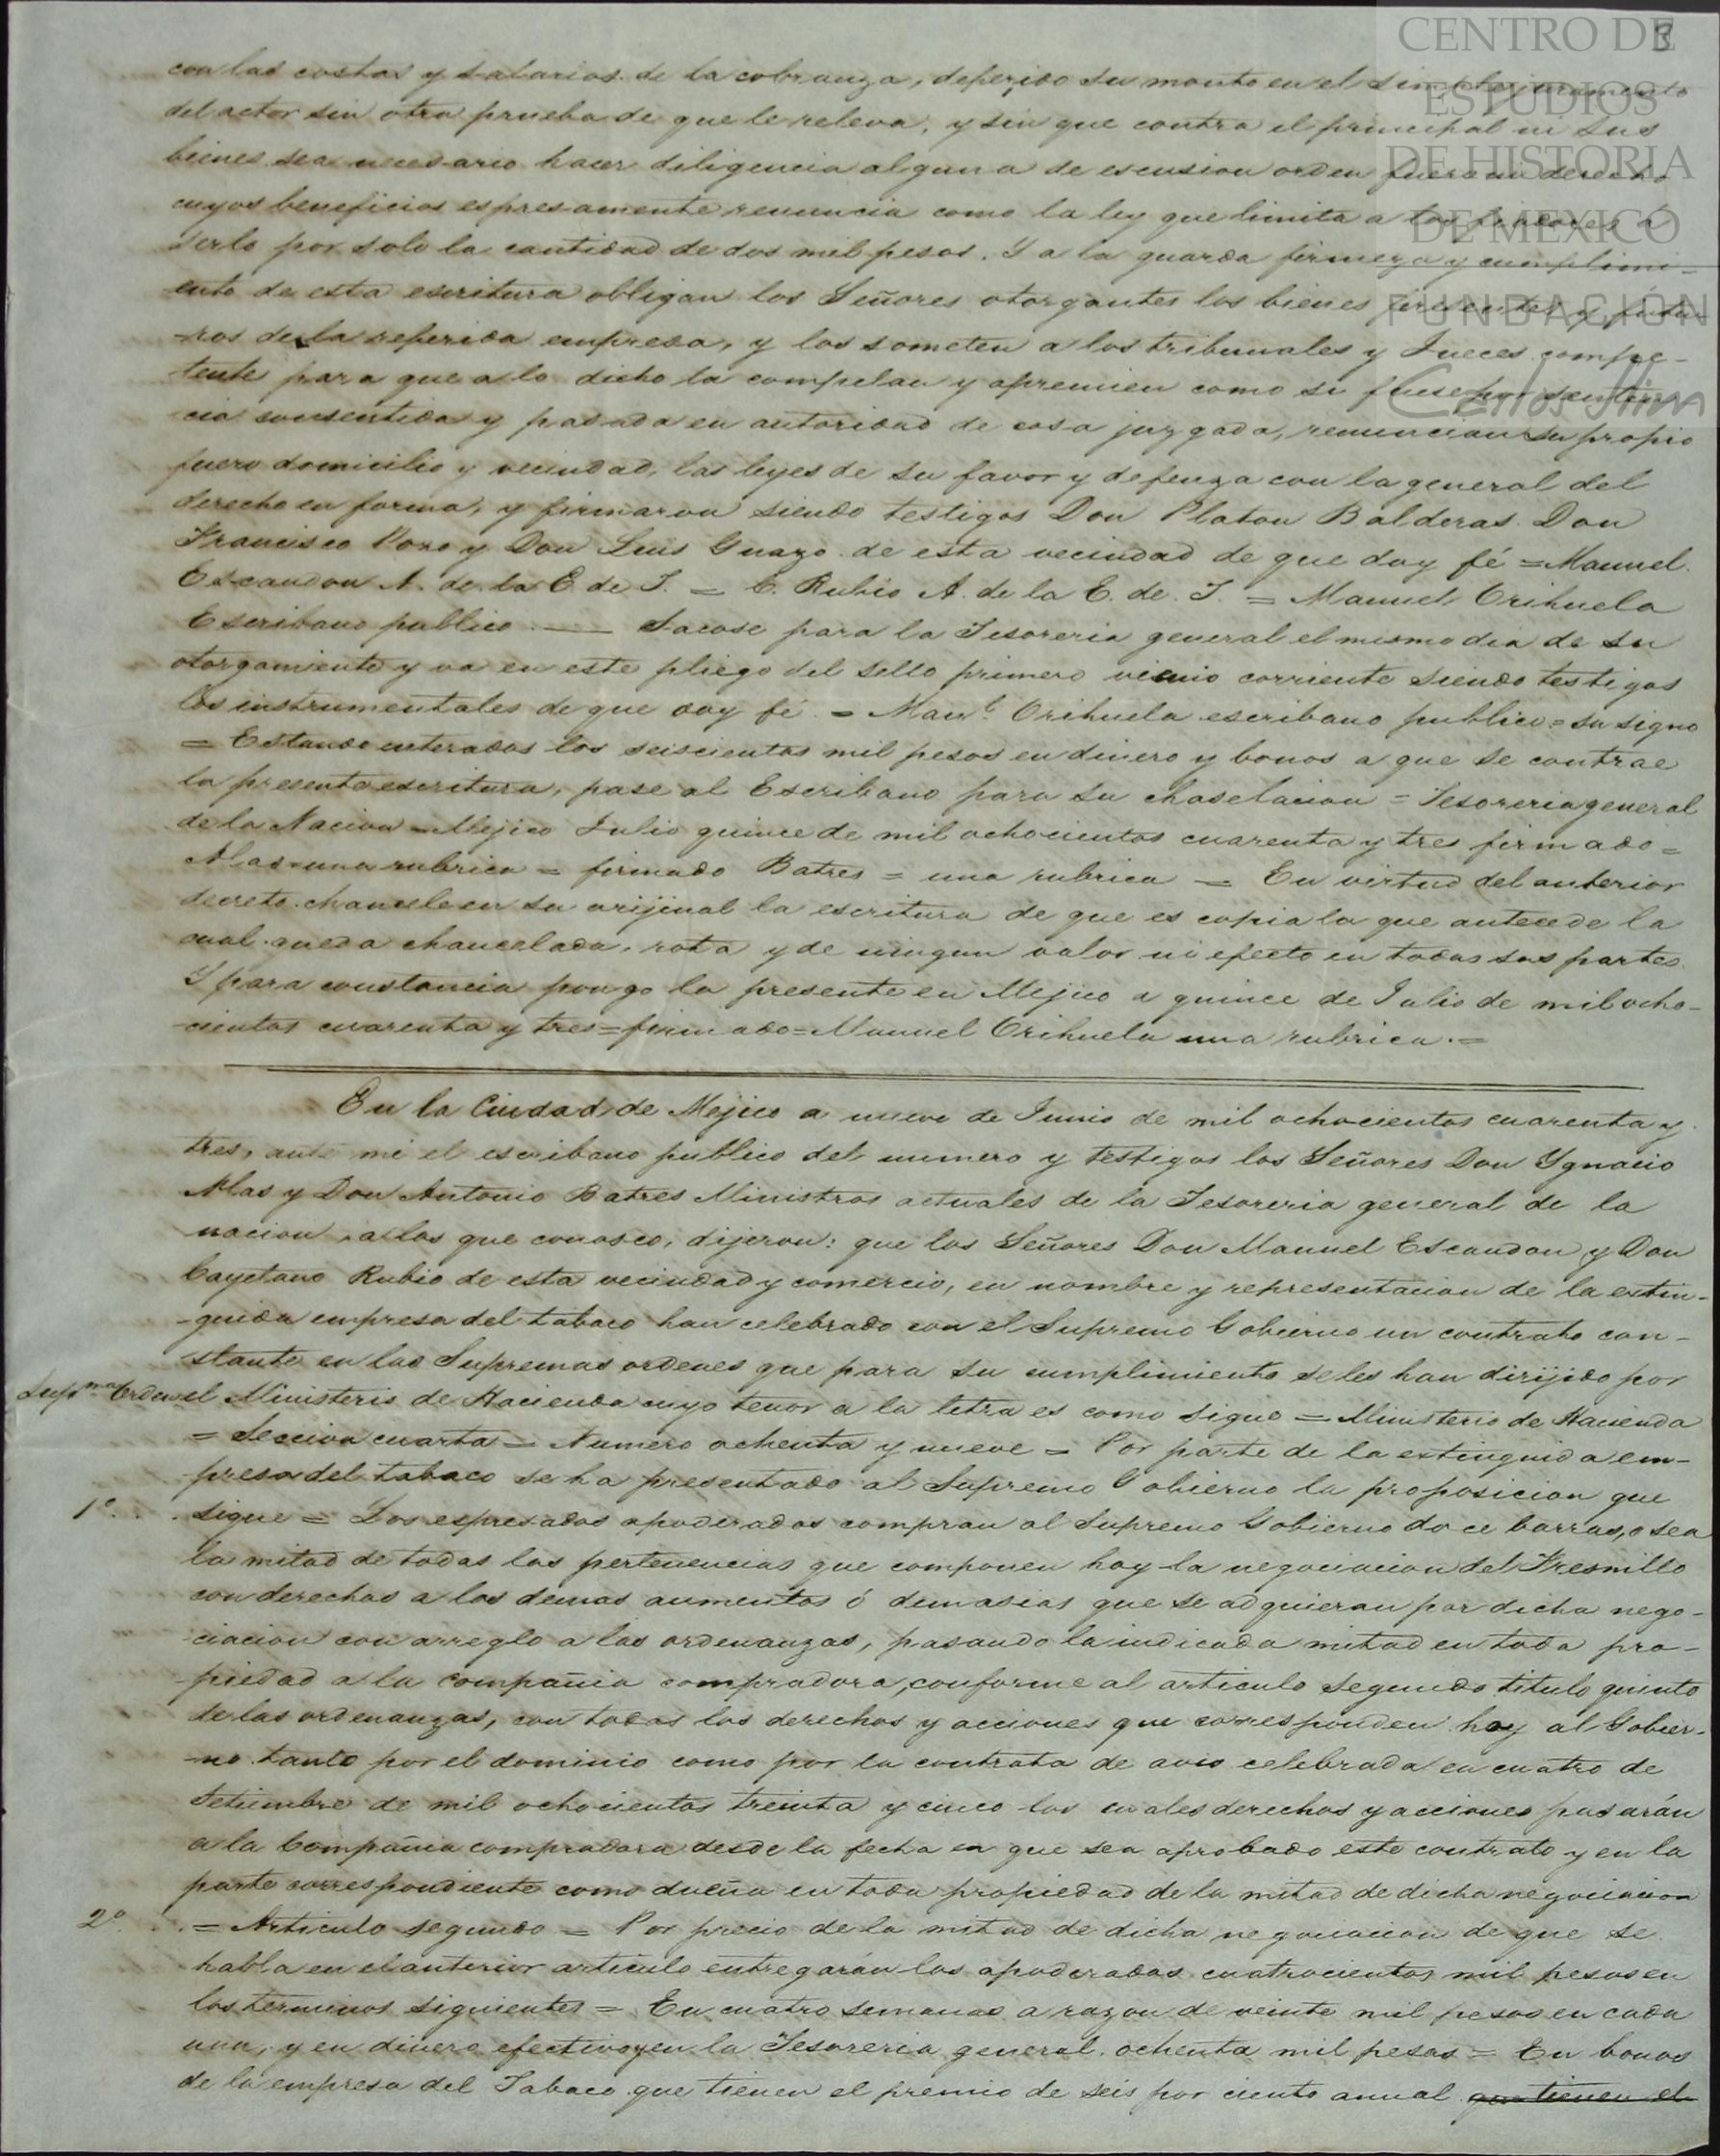 CENTRO DE
ESTUDIOS
DE HISTORIA
DE MEXICO
FUNDACIÓN
Carlos Slim
3
con las costas y salarios de la cobranza, deferido su monto en el simple juramento
del actor sin otra prueba de que le releva, y sin que contra el principal ni sus
bienes sea necesario hacer diligencia alguna de escusion orden fuero ni derecho
cuyos beneficios espresamente renuncia como la ley que limita a los fiadores á
serlo por solo la cantidad de dos mil pesos. Y a la guarda firmeza y cumplimi-
ento de esta escritura obligan los Señores otorgantes los bienes presentes y futu-
-ros de la referida empresa, y los someten a los tribunales y Jueces compe-
tente para que a lo dicho la compelan y apremien como si fuese por senten-
cia consentida y pasada en autoridad de cosa juzgada, renuncian su propio
fuero domicilio y vecindad, las leyes de su favor y defenza con la general del
derecho en forma, y firmaron siendo testigos Don Platon Balderas Don
Francisco Pozo y Don Luis Guazo de esta vecindad de que doy fé = Manuel
Escandon A. de la E. de T. = C. Rubio A. de la E. de T. = Manuel Orihuela
Escribano publico. — Sacose para la Tesoreria general el mismo dia de su
otorgamiento y va en este pliego del sello primero vienio corriente siendo testigos
los instrumentales de que doy fé = Man.l Orihuela escribano publico = su signo
= Estando enterados los seiscientos mil pesos en dinero y bonos a que se contrae
la presente escritura, pase al Escribano para su chaselacion = Tesoreria general
de la Nacion = Mejico Julio quince de mil ochocientos cuarenta y tres firmado =
Mas = una rubrica = firmado Batres = una rubrica = En virtud del anterior
decreto chancele en su orijinal la escritura de que es copia la que antecede la
cual queda chancelada, rota y de ningun valor ni efecto en todas sus partes.
Y para constancia pongo la presente en Mejico a quince de Julio de mil ocho-
-cientos cuarenta y tres = firmado = Manuel Orihuela una rubrica. =
En la Ciudad de Mejico a nueve de Junio de mil ochocientos cuarenta y
tres, ante mi el escribano publico del numero y testigos los Señores Don Ygnacio
Mas y Don Antonio Batres Ministros actuales de la Tesoreria general de la
nacion, a los que conosco, dijeron: que los Señores Don Manuel Escandon y Don
Cayetano Rubio de esta vecindad y comercio, en nombre y representacion de la extin-
-guida empresa del tabaco han celebrado con el Supremo Gobierno un contrato con-
stante en las Supremas ordenes que para su cumplimiento se les han dirijido por
Sup.ma Orden el Ministerio de Hacienda cuyo tenor a la letra es como sigue = Ministerio de Hacienda
= Seccion cuarta = Numero ochenta y nueve = Por parte de la extinguida em-
presa del tabaco se ha presentado al Supremo Gobierno la proposicion que
1º. sigue = Los espresados apoderados compran al Supremo Gobierno doce barras, o sea
la mitad de todas las pertenencias que componen hoy la negociacion del Fresnillo
con derechos a los demas aumentos ó demasias que se adquieran por dicha nego-
-ciacion con arreglo a las ordenanzas, pasando la indicada mitad en toda pro-
-piedad a la compañia compradora, conforme al articulo segundo titulo quinto
de las ordenanzas, con todos los derechos y acciones que corresponden hoy al Gobier-
-no tanto por el dominio como por la contrata de avio celebrada en cuatro de
Setiembre de mil ochocientos treinta y cinco los cuales derechos y acciones pasarán
a la Compañia compradora desde la fecha en que sea aprobado este contrato y en la
parte correspondiente como dueña en toda propiedad de la mitad de dicha negociacion
2º. = Articulo segundo = Por precio de la mitad de dicha negociacion de que se
habla en el anterior articulo entregarán los apoderados cuatrocientos mil pesos en
los terminos siguientes = En cuatro semanas a razon de veinte mil pesos en cada
una, y en dinero efectivo y en la Tesoreria general, ochenta mil pesos = En bonos
de la empresa del Tabaco que tienen el premio de seis por ciento anual que tienen el